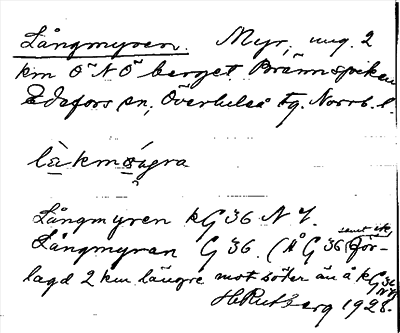 Långmyren. Myr, ung. 2
km Ö N Ö berget Brännspiken
Edefors sn, Överluleå tg. Norrb. l.
Långmyren kG 36 NV.
Långmyran G 36. (Å G 36 samt ek, för-
lagd 2 km längre mot söder än å kG 36
NV)
H Rutberg 1928.